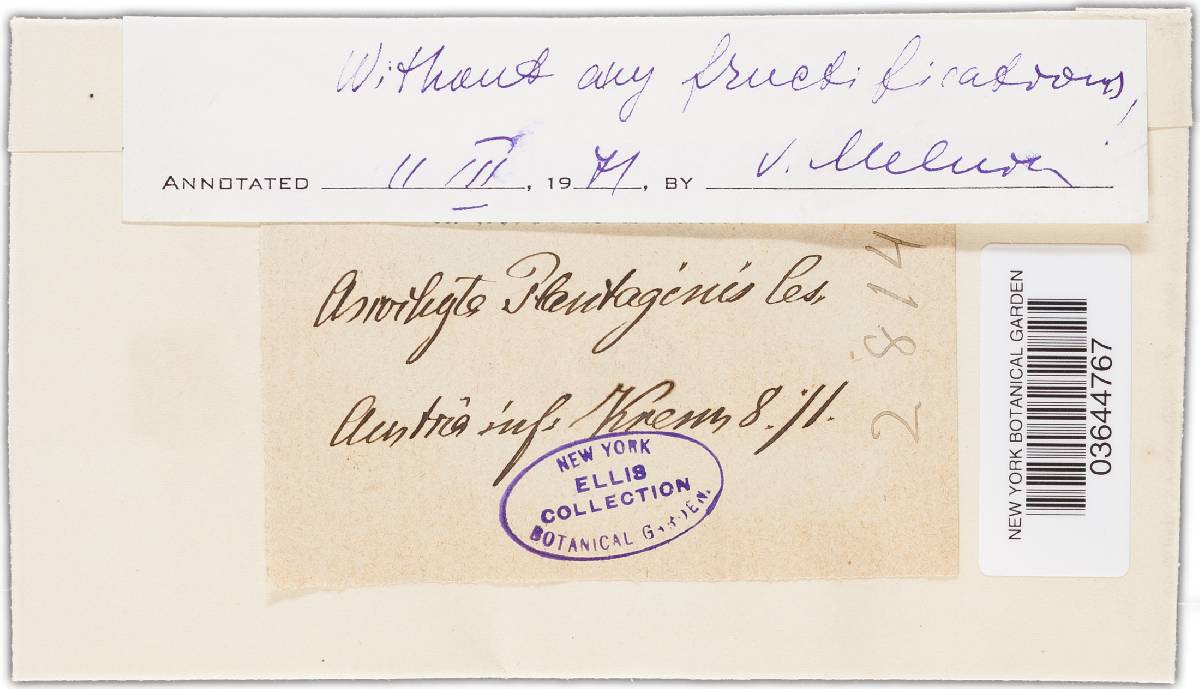 Without any fructifications,
ANNOTATED 11 III, 1971, BY V. Melnik
Ascochyta Plantaginis Ces.
Austria inf. Krems 8.71.
2814
NEW YORK
ELLIS
COLLECTION
BOTANICAL GARDEN.
NEW YORK BOTANICAL GARDEN
03644767